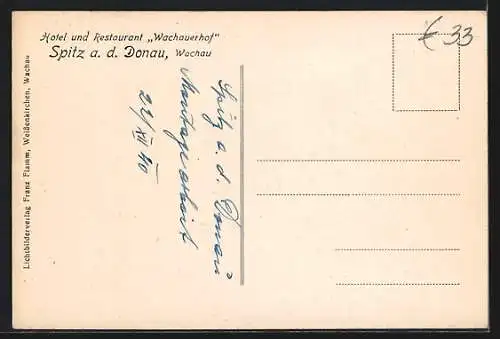 Hotel und Restaurant „Wachauerhof"
Spitz a. d. Donau, Wachau
€ 33
Spitz a. d. Donau
Montagearbeit
22/XII 40
Lichtbilderverlag Franz Flamm, Weißenkirchen, Wachau